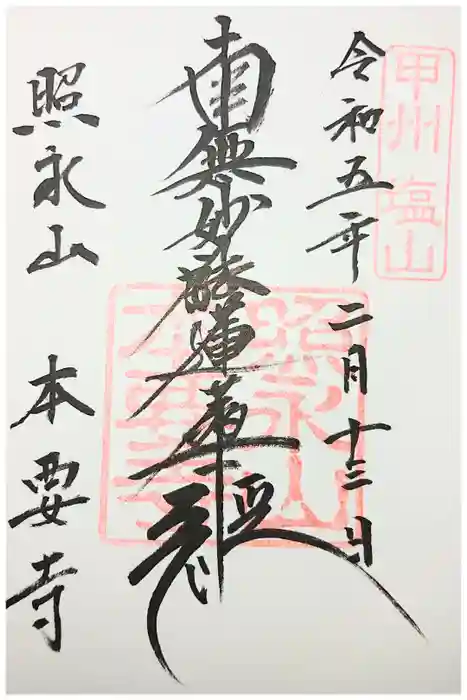 甲州塩山
令和五年二月十三日
南無妙法蓮華経
照永山
本要寺
照永山
本要寺